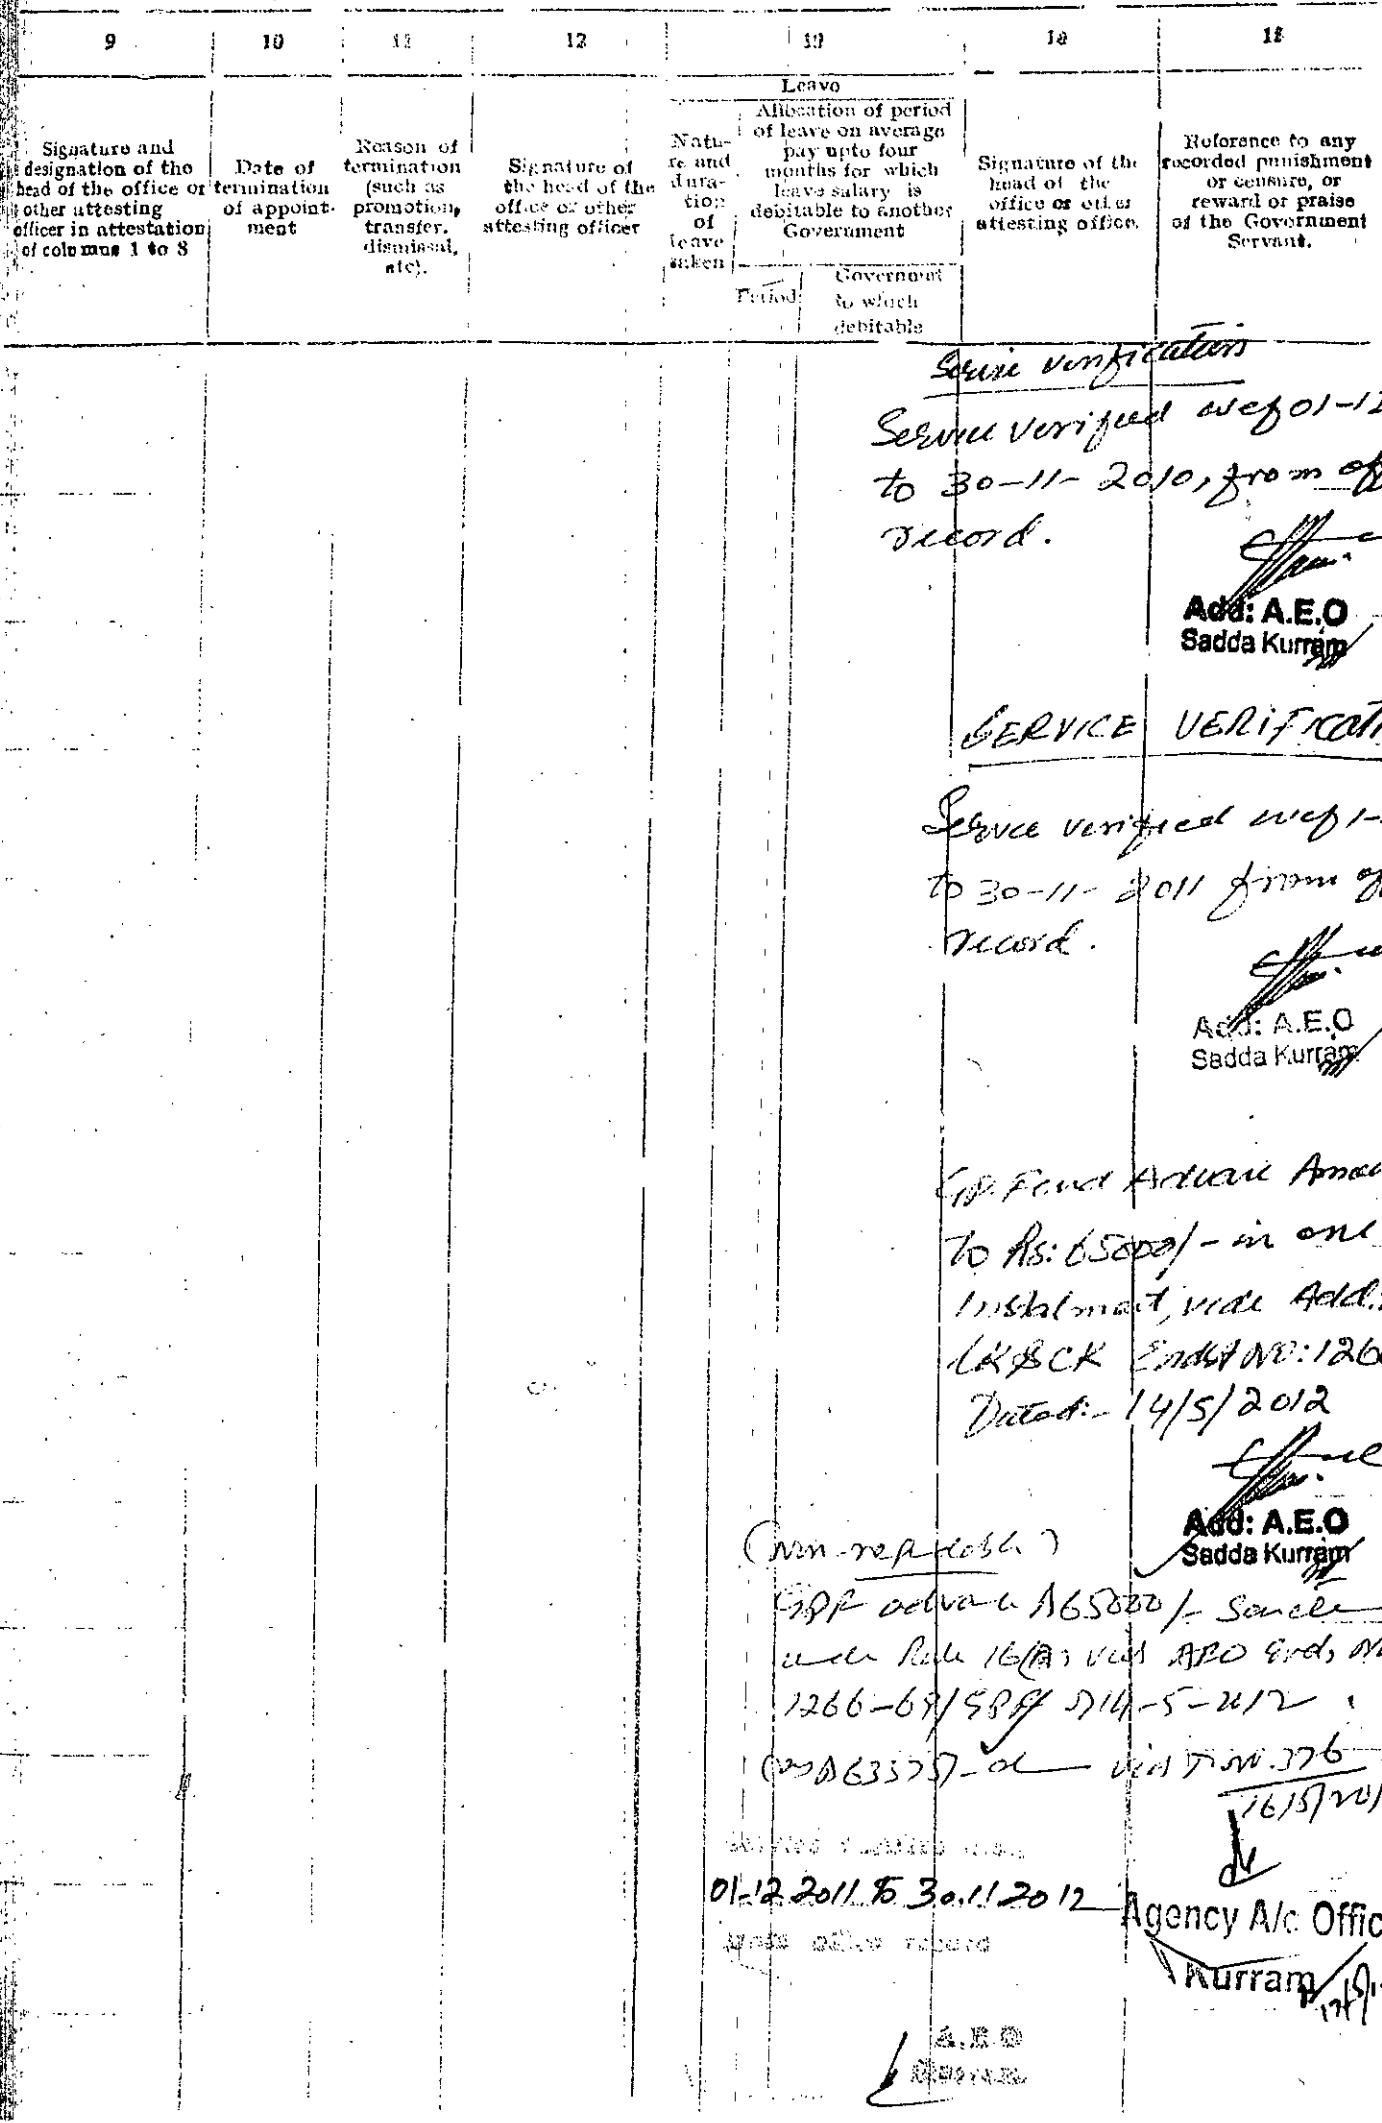 9 10 11 12 13 14 15
Leave
Signature and
designation of the
head of the office or
other attesting
officer in attestation
of columns 1 to 8
Date of
termination
of appoint-
ment
Reason of
termination
(such as
promotion,
transfer.
dismissal,
etc).
Signature of
the head of the
office or other
attesting officer
Natu-
re and
dura-
tion
of
leave
taken
Allocation of period
of leave on average
pay upto four
months for which
leave salary is
debitable to another
Government
Period
Government
to which
debitable
Signature of the
head of the
office or other
attesting office.
Reference to any
recorded punishment
or censure, or
reward or praise
of the Government
Servant.
Service verification
Service verified wef 01-12
to 30-11-2010, from
record.
Add: A.E.O
Sadda Kurram
SERVICE VERIFICATI
Service verified wef 1-
to 30-11-2011 from
record.
Add: A.E.O
Sadda Kurram
G.P. Fund Advance Amou
To Rs: 65000/- in one
Instalment, vide Add:
Endst NO: 126
Dated:- 14/5/2012
Add: A.E.O
Sadda Kurram
GPF advance 65000/-
under Rule 16 vide Ends
1266-69/GPF 14-5-2012
376
16/5/201
01-12 2011 to 30.11 2012
office record
Agency A/c Offic
Kurram
A.E.O
Kurram